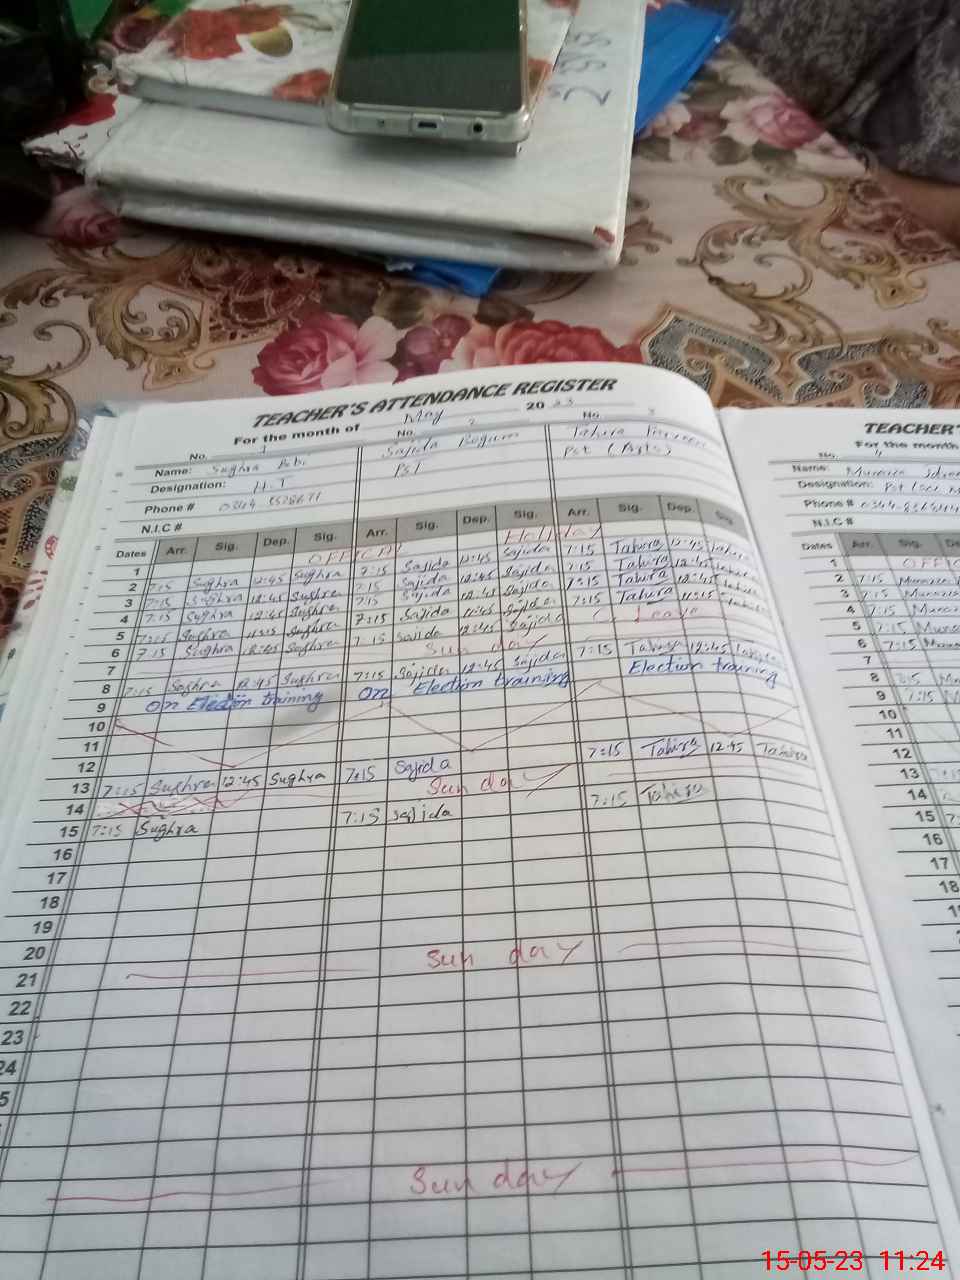 TEACHER'S ATTENDANCE REGISTER
For the month of May 2023
No. 1 No. 2 No. 3
Name: Sughra Bibi Sajida Begum Tahira
Designation: H.T PST PST
Phone # 0344
N.I.C #
Dates Arr. Sig. Dep. Sig. Arr. Sig. Dep. Sig. Arr. Sig. Dep. Sig.
1 OFFICIAL Holiday
2 7:15 Sughra 12:45 Sughra 7:15 Sajida 12:45 Sajida 7:15 Tahira 12:45 Tahira
3 7:15 Sughra 12:45 Sughra 7:15 Sajida 12:45 Sajida 7:15 Tahira 12:45 Tahira
4 7:15 Sughra 12:45 Sughra 7:15 Sajida 12:45 Sajida 7:15 Tahira 12:45 Tahira
5 7:15 Sughra 11:15 Sughra 7:15 Sajida Sajida 7:15 Tahira 11:15 Tahira
6 7:15 Sughra 12:45 Sughra 7:15 Sajida 12:45 Sajida Leave
7 Sunday
8 7:15 Sughra 12:45 Sughra 7:15 Sajida 12:45 Sajida 7:15 Tahira 12:45 Tahira
9 On Election training On Election training Election training
10
11
12
13 7:15 Sughra 12:45 Sughra 7:15 Sajida 7:15 Tahira 12:45 Tahira
14 Sunday
15 7:15 Sughra 7:15 Sajida 7:15 Tahira
16
17
18
19
20
21 Sunday
22
23
24
5
Sunday
TEACHER'
For the month
No. 4
Name:
Designation: PST
Phone #
N.I.C #
Dates Arr. Sig. Dep.
1 OFFIC
2 7:15
3 7:15
4 7:15
5 7:15
6 7:15
7
8 7:15
9 7:15
10
11
12
13
14
15
16
17
18
15-05-23 11:24